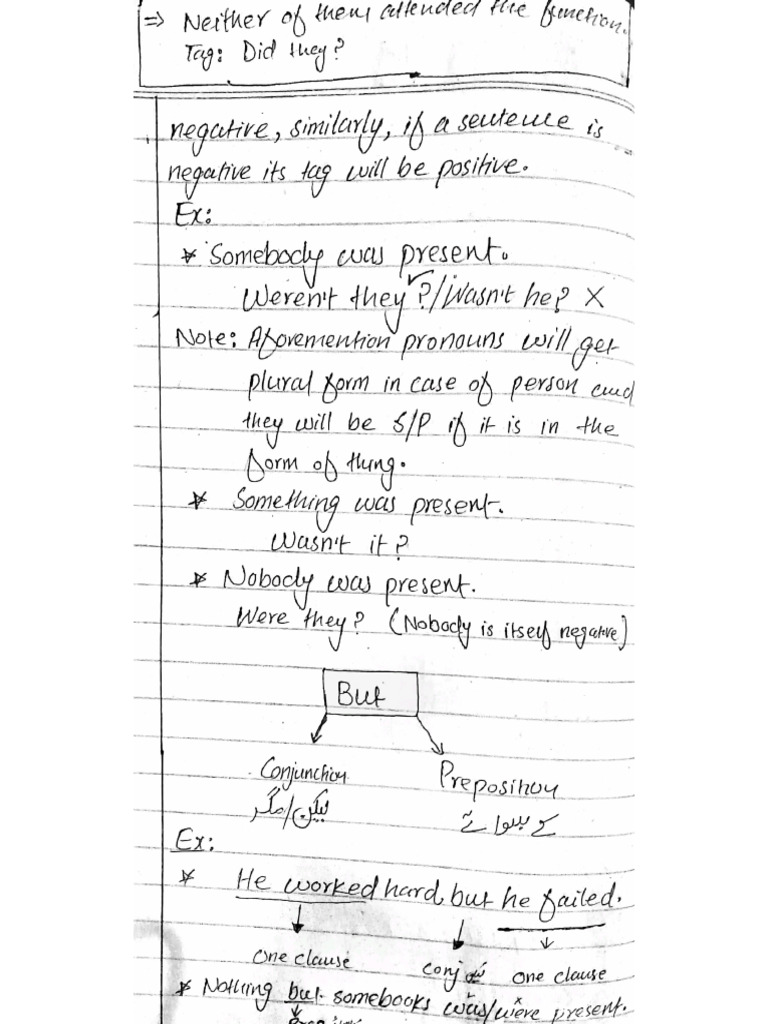 ⇒ Neither of them attended the function.
Tag: Did they?
negative, similarly, if a sentence is
negative its tag will be positive.
Ex:
* Somebody was present.
Weren't they ✓?/Wasn't he? X
Note: Aforemention pronouns will get
plural form in case of person and
they will be S/P if it is in the
form of thing.
* Something was present.
Wasn't it?
* Nobody was present.
Were they? (Nobody is itself negative)
But
Conjunction Preposition
لیکن/مگر کے سوائے
Ex:
* He worked hard, but he failed.
One clause conj one clause
* Nothing but somebooks was/were present.